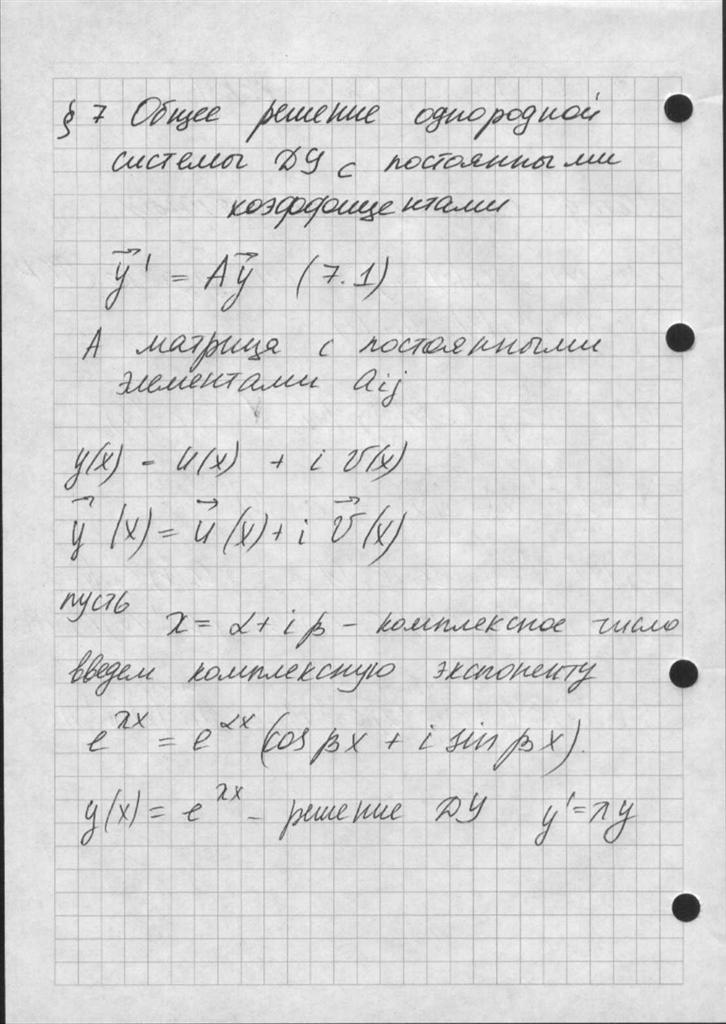 § 7 Общее решение однородной
системы ДУ с постоянными
коэффициентами
y⃗' = Ay⃗ (7.1)
А матрица с постоянными
элементами aij
y(x) - u(x) + i v(x)
y⃗(x) = u⃗(x) + i v⃗(x)
пусть
λ = α + iβ - комплексное число
введем комплексную экспоненту
e^{λx} = e^{αx} (cos βx + i sin βx).
y(x) = e^{λx} - решение ДУ y' = λy